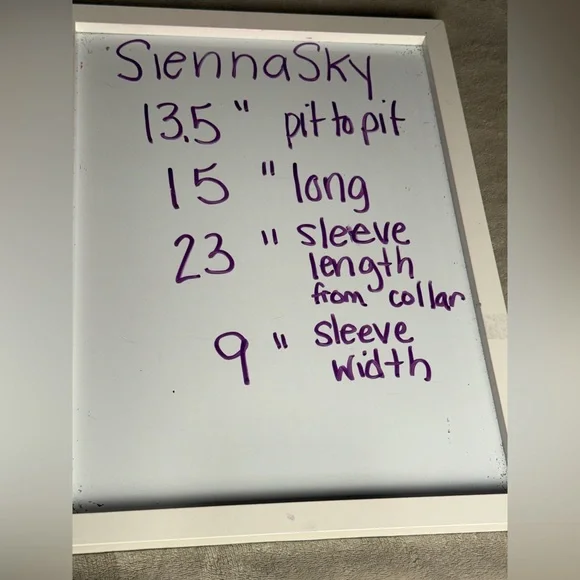 SiennaSky
13.5" pit to pit
15" long
23" sleeve
length
from collar
9" sleeve
width